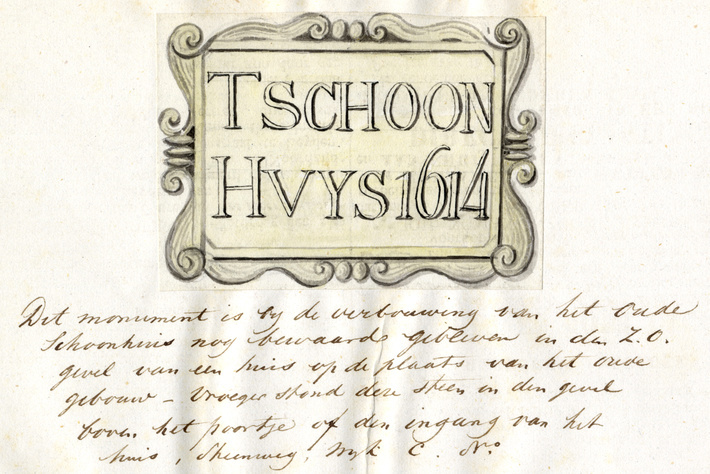 TSCHOON
HVYS 1614
Dit monument is by de verbouwing van het Oude
Schoonhuis nog bewaard gebleven in den Z.O.
gevel van een huis op de plaats van het oude
gebouw – Vroeger stond deze steen in den gevel
boven het poortje of den ingang van het
huis, Steenweg, Wyk C. No.